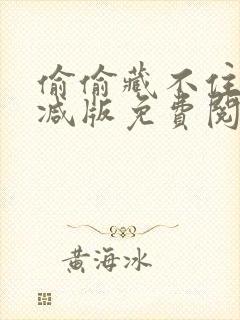 偷偷藏不住
减版免費閱
黄海冰